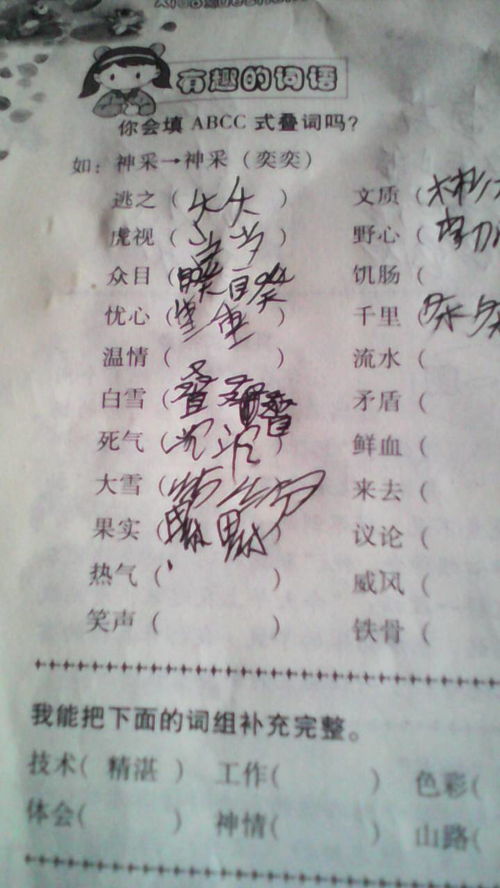 有趣的词语
你会填 ABCC 式叠词吗？
如：神采→神采（奕奕）
逃之（夭夭） 文质（
虎视（ ） 野心（
众目（睽睽） 饥肠（
忧心（ ） 千里（
温情（ ） 流水（
白雪（ ） 矛盾（
死气（沉沉） 鲜血（
大雪（ ） 来去（
果实（累累） 议论（
热气（ ） 威风（
笑声（ ） 铁骨（
我能把下面的词组补充完整。
技术（ 精湛 ） 工作（ ） 色彩（
体会（ ） 神情（ ） 山路（